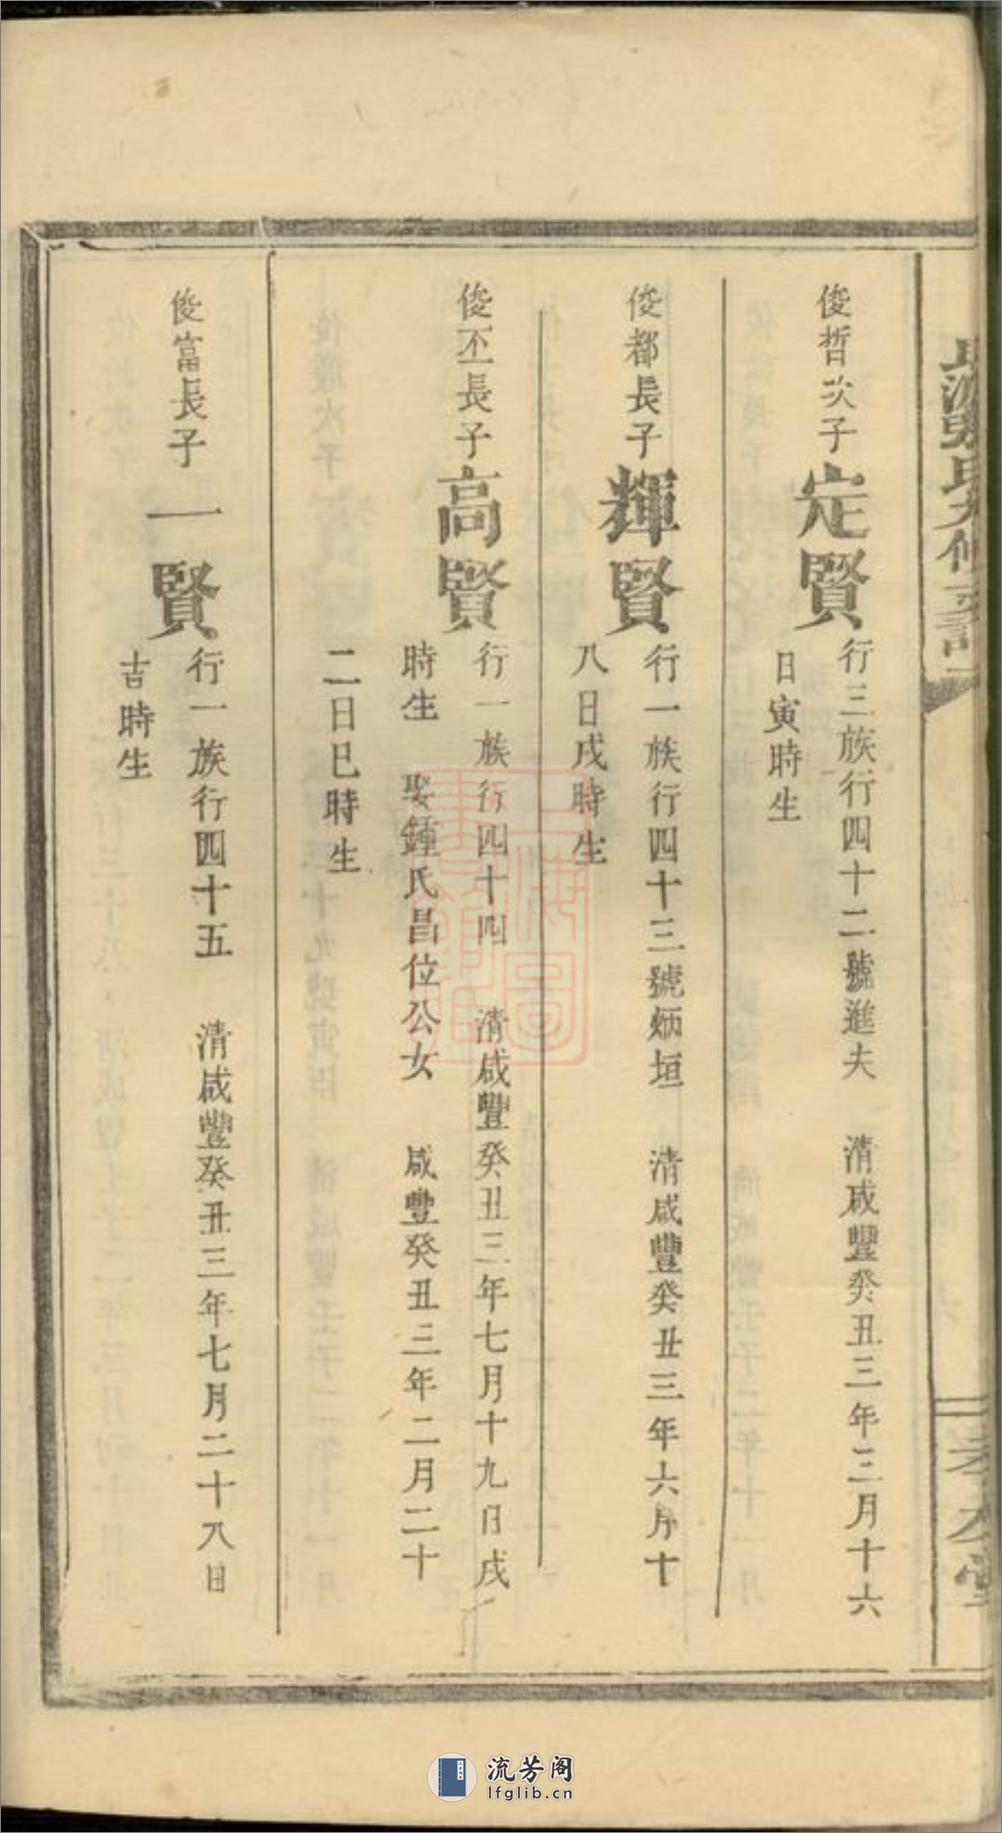 俊哲次子
定賢
行三族行四十二號進夫　清咸豐癸丑三年三月十六
日寅時生
俊都長子
輝賢
行一族行四十三號炳垣　清咸豐癸丑三年六月十
八日戌時生
俊丕長子
高賢
行一族行四十四　清咸豐癸丑三年七月十九日戌
時生　娶鍾氏昌位公女　咸豐癸丑三年二月二十
二日巳時生
俊富長子
一賢
行一族行四十五　清咸豐癸丑三年七月二十八日
吉時生
流芳阁
lfglib.cn